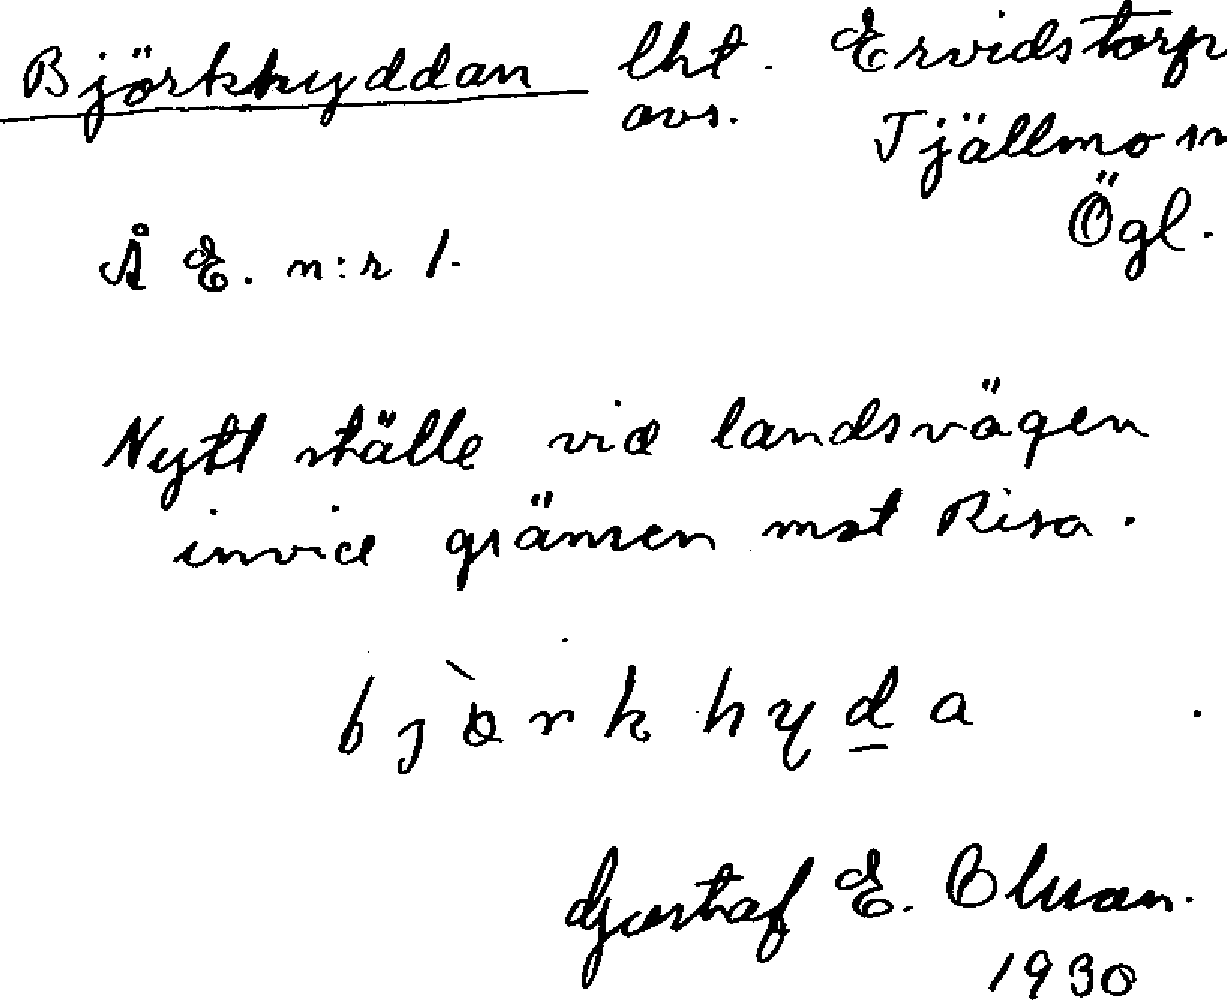 Björkhyddan lht. Ervidstorp
avs. Tjällmo sn
Ögl.
Å E. n:r 1.
Nytt ställe vid landsvägen
invid gränsen mot Risa.
b j ò r k h y d a
Gustaf E.
1930